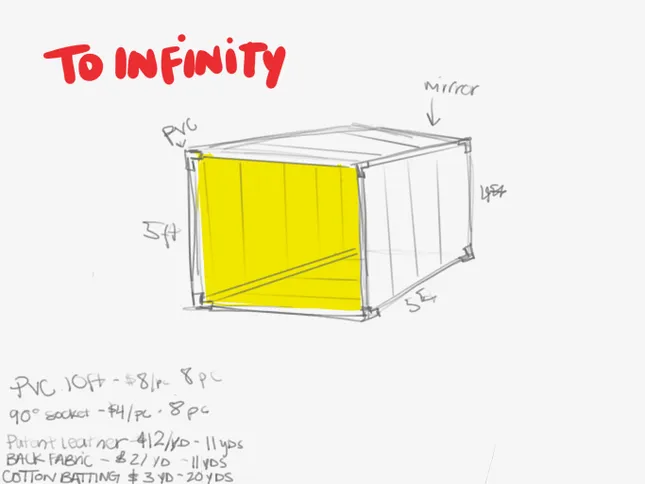 TO INFINITY
mirror
PVC
5ft
5ft
PVC 10ft - $8/pc 8pc
90° socket - $4/pc - 8pc
Patent leather $12/YD - 11yds
BACK FABRIC - $2/YD - 11YDS
COTTON BATTING $3 YD - 20YDS